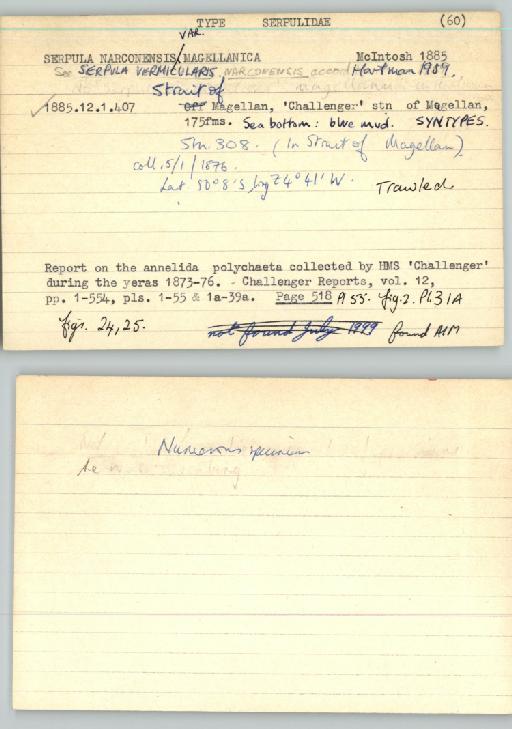 TYPE SERPULIDAE (60)
VAR.
SERPULA NARCONENSIS/MAGELLANICA McIntosh 1885
See SERPULA VERMICULARIS NARCONENSIS accord Hartman 1959.
Strait of
1885.12.1.407 Off Magellan, 'Challenger' stn of Magellan,
175fms. Sea bottom: blue mud. SYNTYPES.
Stn. 308. (In Strait of Magellan)
coll. 5/1/1876.
Lat 50°8'S, lng 74°41'W. Trawled
Report on the annelida polychaeta collected by HMS 'Challenger'
during the yeras 1873-76. - Challenger Reports, vol. 12,
pp. 1-554, pls. 1-55 & 1a-39a. Page 518 Pl 55. fig. 2. Pl. 31A
figs. 24,25. not found July 1999 found
Numerous specimens